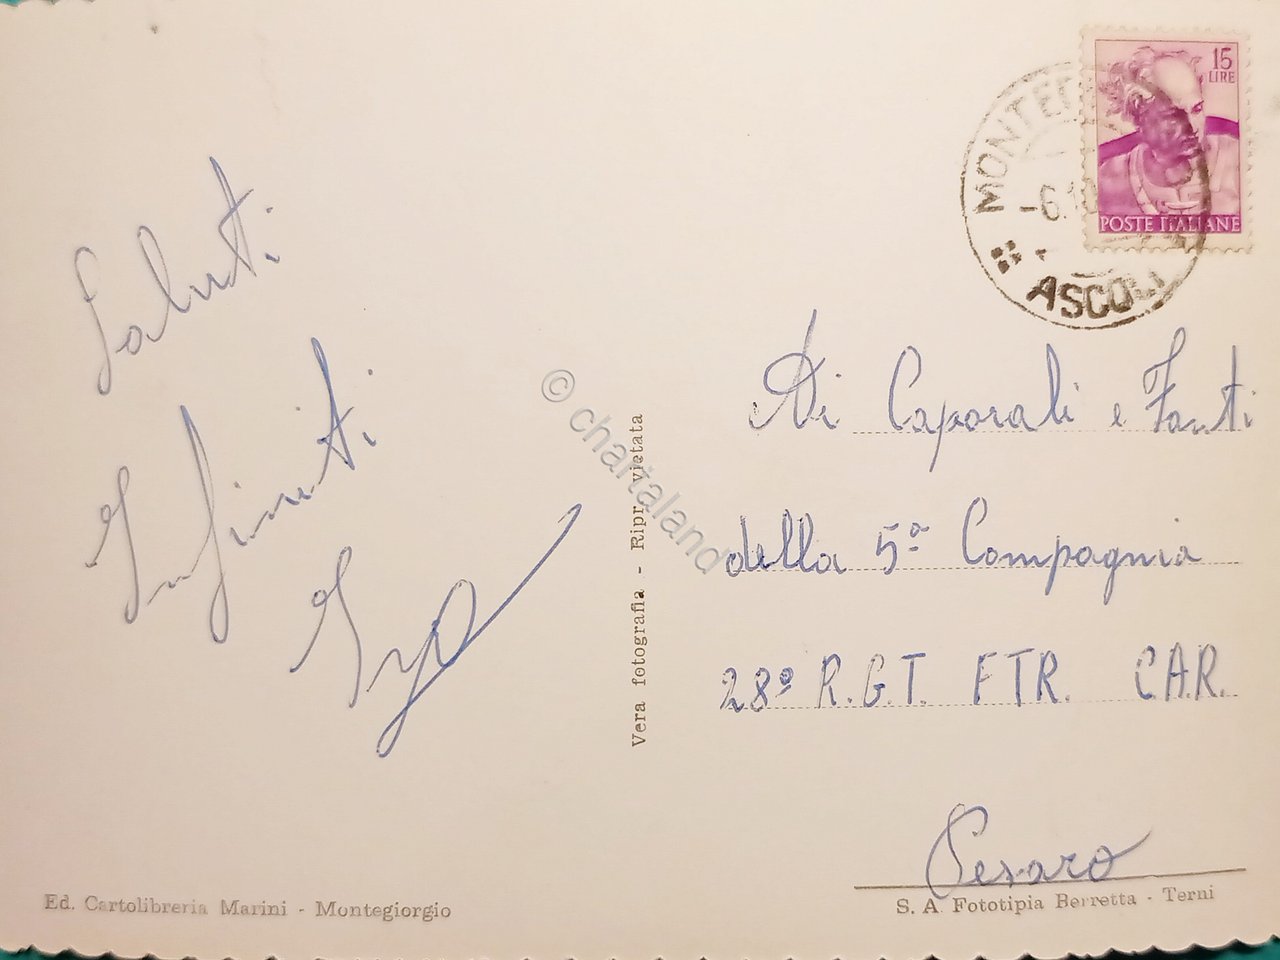 15
LIRE
POSTE ITALIANE
-6.10
ASCOLI
Saluti
Infiniti
Ai Caporali e Fanti
della 5ª Compagnia
28º R.G.T. FTR. C.A.R.
Pesaro
Vera fotografia - Ripr. vietata
© chartaland
Ed. Cartolibreria Marini - Montegiorgio
S. A. Fototipia Berretta - Terni